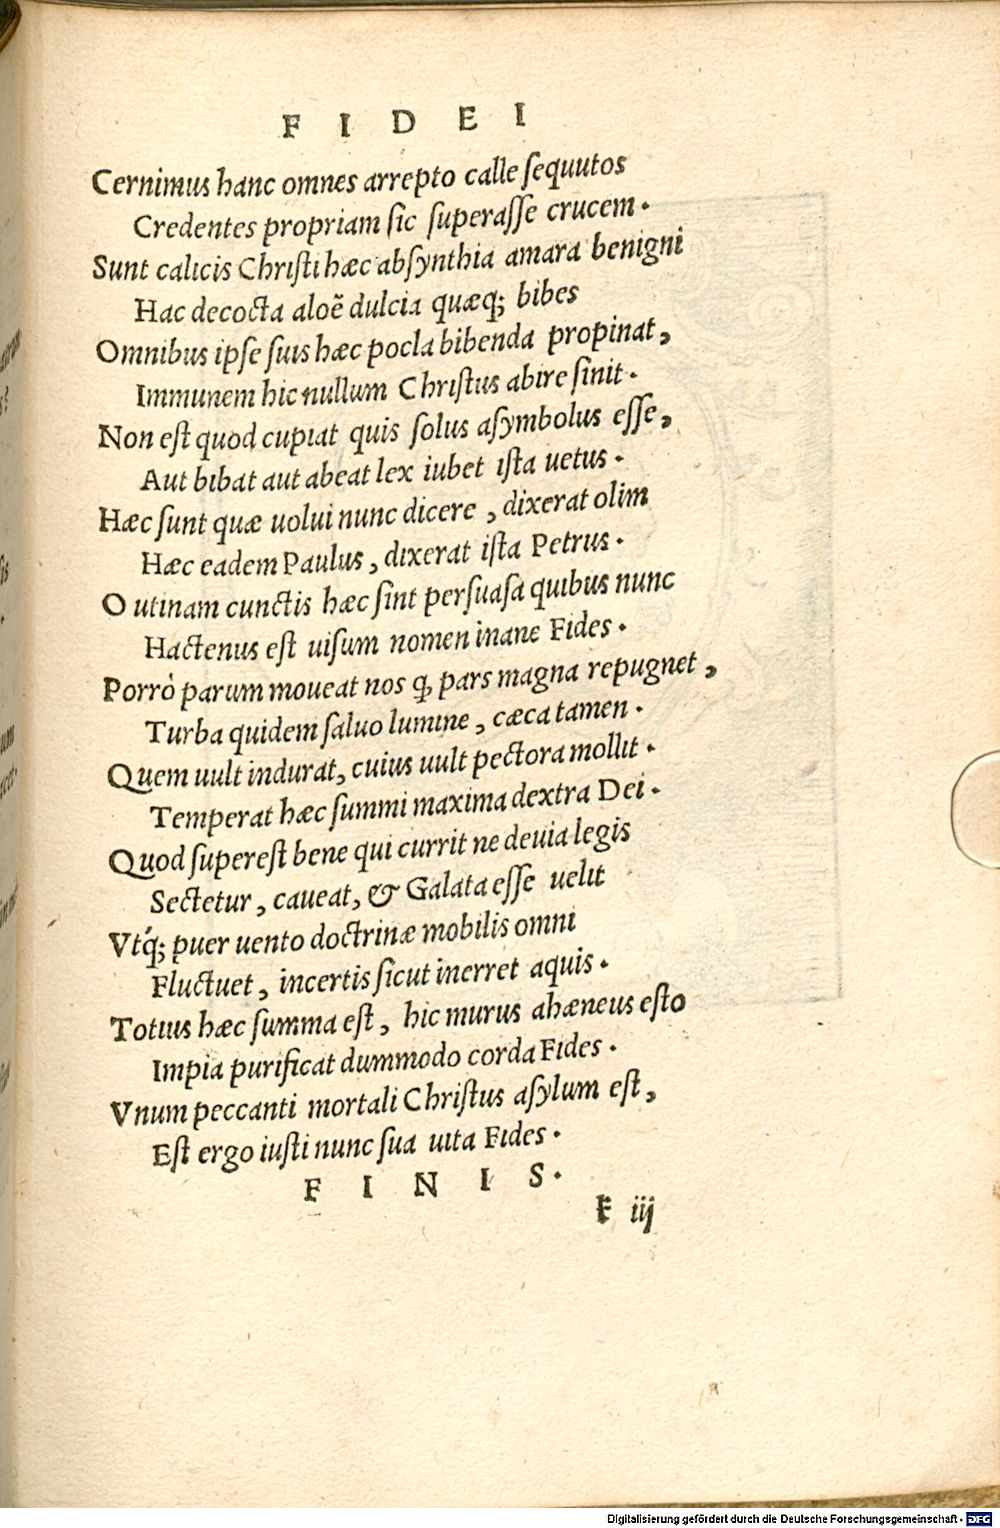 FIDEI
Cernimus hanc omnes arrepto calle ſequutos
Credentes propriam ſic ſuperaſſe crucem.
Sunt calicis Chriſti hæc abſynthia amara benigni
Hac decocta aloẽ dulcia quæq; bibes
Omnibus ipſe ſuis hæc pocla bibenda propinat,
Immunem hic nullum Chriſtus abire ſinit.
Non eſt quod cupiat quis ſolus aſymbolus eſſe,
Aut bibat aut abeat lex iubet iſta uetus.
Hæc ſunt quæ uolui nunc dicere, dixerat olim
Hæc eadem Paulus, dixerat iſta Petrus.
O utinam cunctis hæc ſint perſuaſa quibus nunc
Hactenus eſt uiſum nomen inane Fides.
Porrò parum moueat nos ꝙ pars magna repugnet,
Turba quidem ſaluo lumine, cæca tamen.
Quem uult indurat, cuius uult pectora mollit.
Temperat hæc ſummi maxima dextra Dei.
Quod ſupereſt bene qui currit ne deuia legis
Sectetur, caueat, & Galata eſſe uelit
Vtq́; puer uento doctrinæ mobilis omni
Fluctuet, incertis ſicut inerret aquis.
Totius hæc ſumma eſt, hic murus ahæneus eſto
Impia purificat dummodo corda Fides.
Vnum peccanti mortali Chriſtus aſylum eſt,
Eſt ergo iuſti nunc ſua uita Fides.
FINIS.
F iij
Digitalisierung gefördert durch die Deutsche Forschungsgemeinschaft - DFG